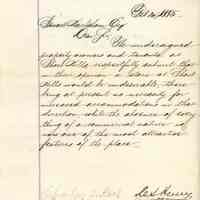 Feb 10, 1885
Stewart Hartshorn Esq
Dear Sir
The undersigned
property owners and tenants at
Short Hills respectfully submit that
in their opinion a store at Short
Hills would be undesirable, there
being at present no necessity for
increased accommodations in that
direction while the absence of every
thing of a commercial nature is
now one of the most attractive
features of the place